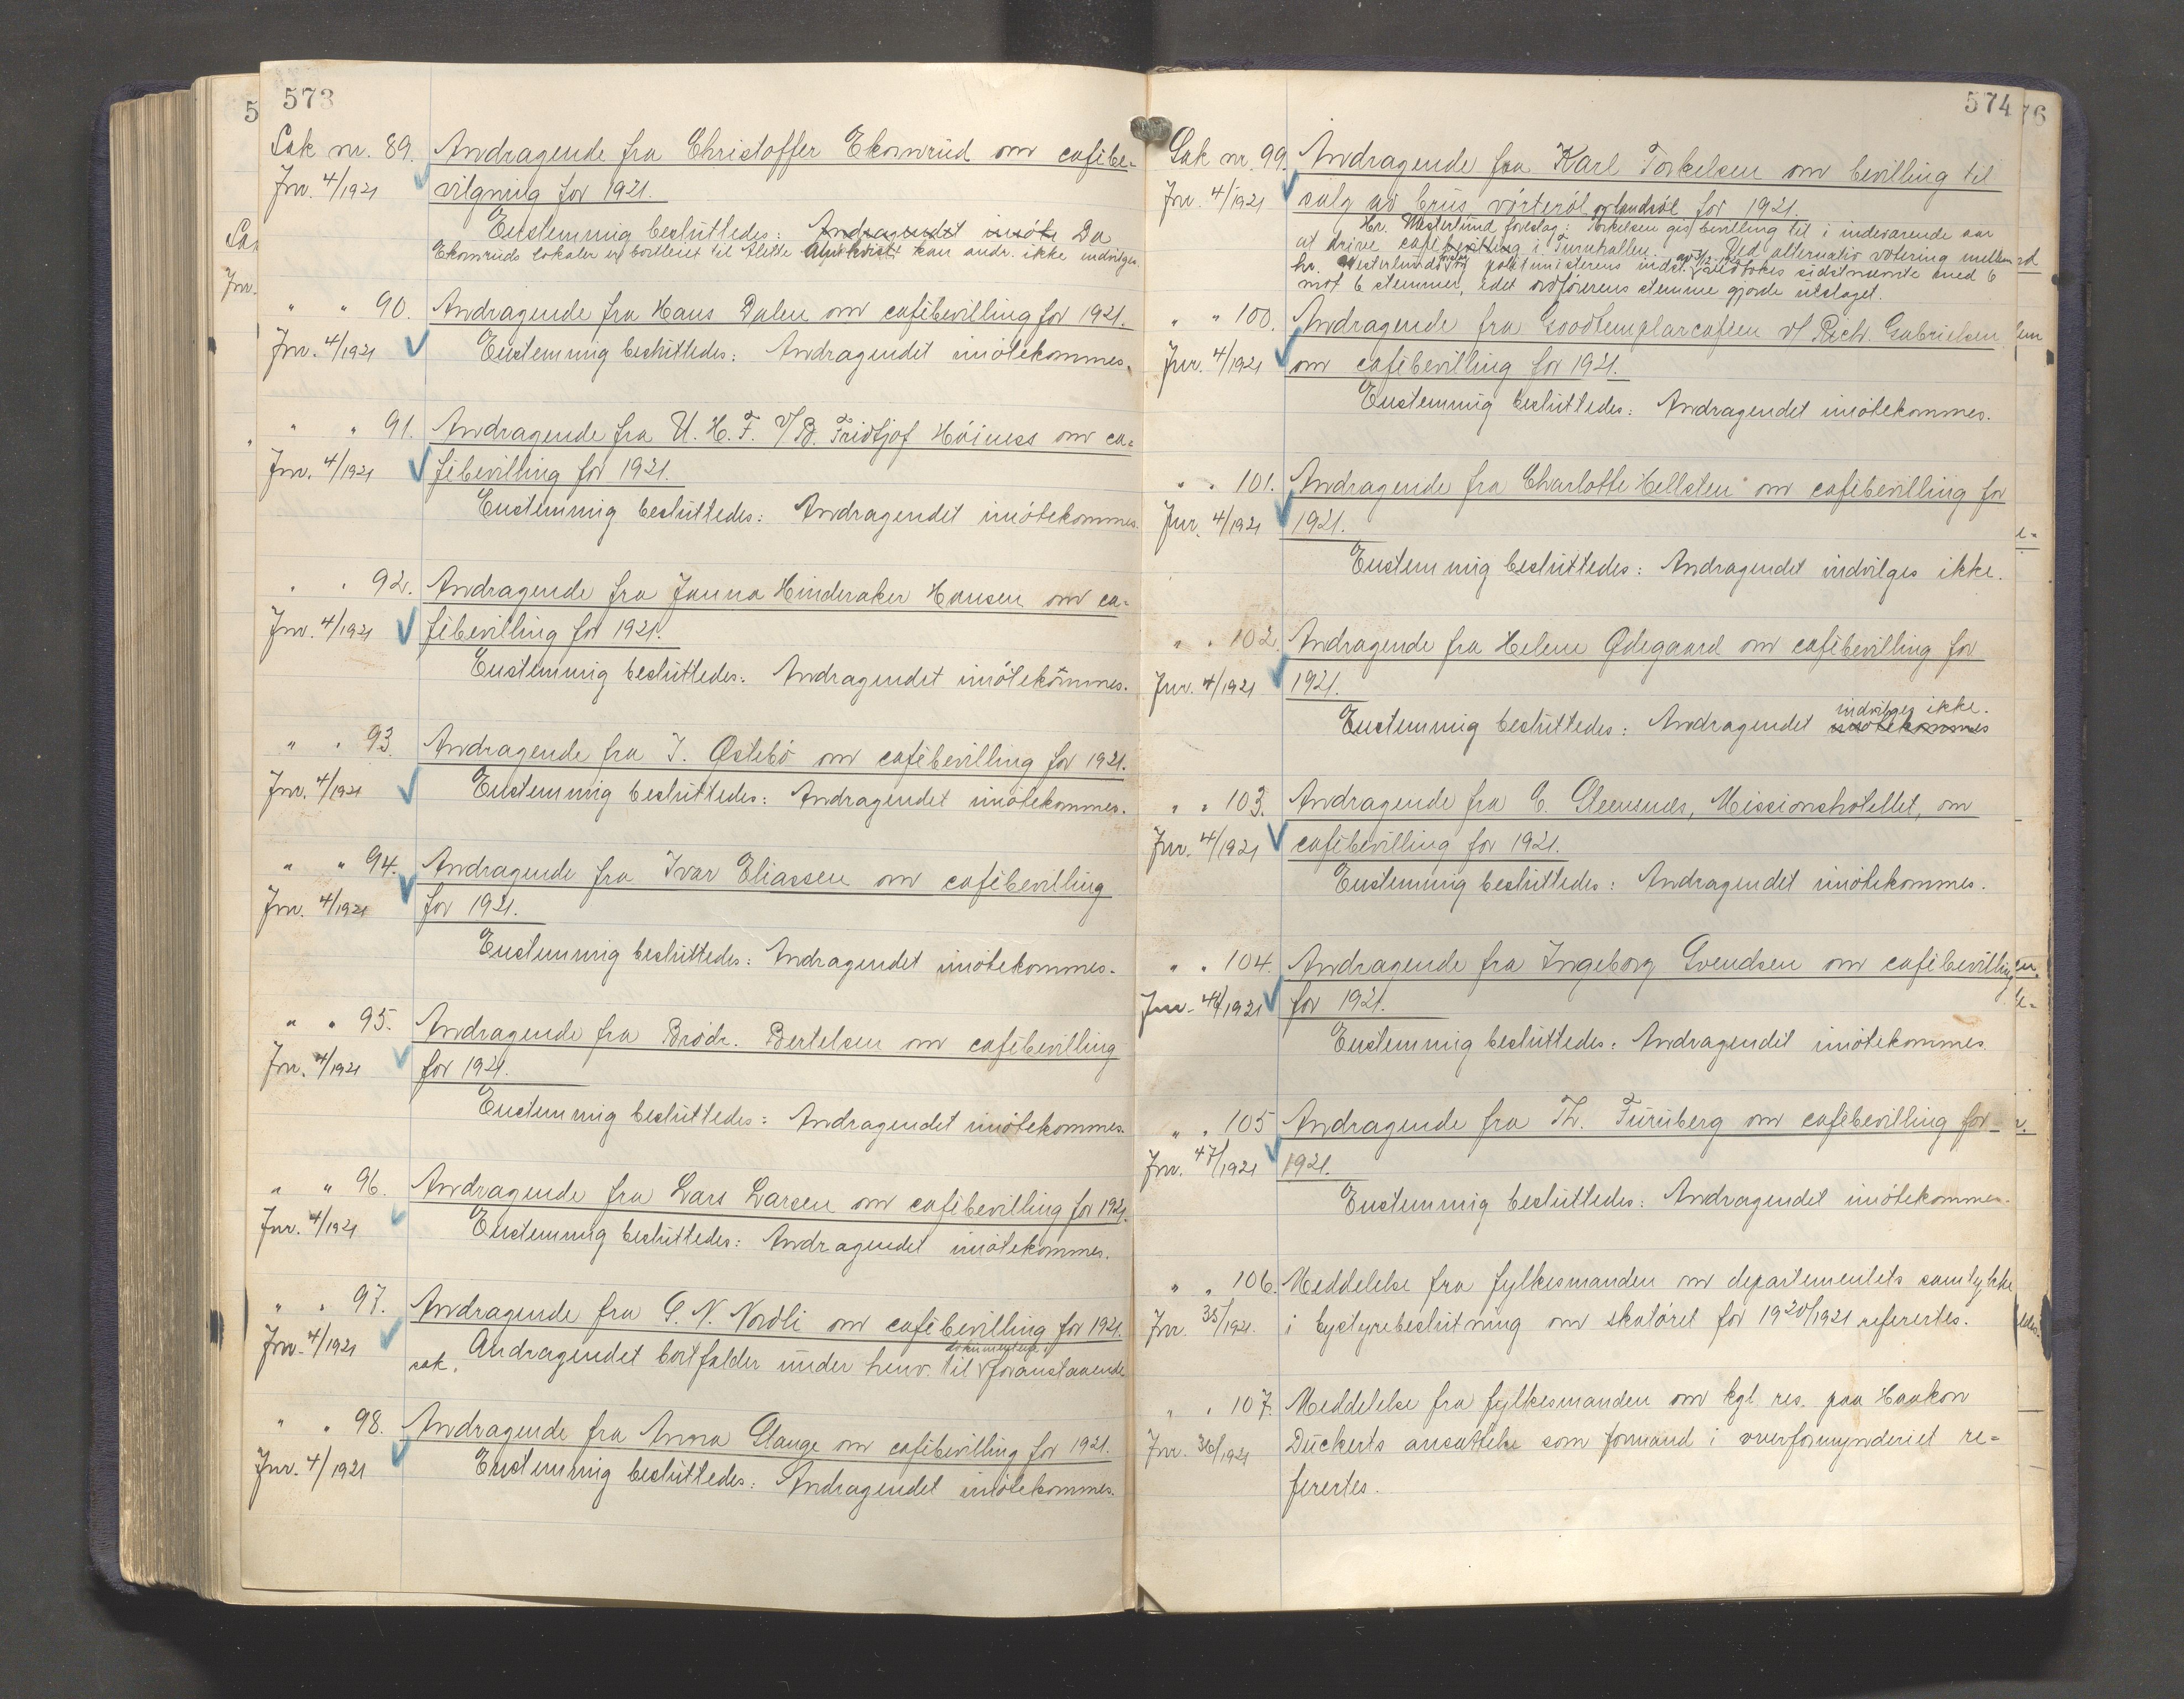 573
Sak nr. 89. Andragende fra Christoffer Ekornrud om cafébe-
Jnr. 4/1921 vilgning for 1921.
Enstemmig besluttedes: Andragendet imøte Da
Ekornruds lokaler er bortleiet til Alette Almkvist kan andr. ikke indvilges.
" " 90. Andragende fra Hans Dalen om cafébevilling for 1921.
Jnr. 4/1921 Enstemmig besluttedes: Andragendet imøtekommes.
" " 91. Andragende fra U. H. F. v/ B. Fridtjof Høiness om ca-
Jnr. 4/1921 fébevilling for 1921.
Enstemmig besluttedes: Andragendet imøtekommes.
" " 92. Andragende fra Janna Hinderaker Hansen om ca-
Jnr. 4/1921 fébevilling for 1921.
Enstemmig besluttedes: Andragendet imøtekommes.
" " 93. Andragende fra I. Østebø om cafébevilling for 1921.
Jnr. 4/1921 Enstemmig besluttedes: Andragendet imøtekommes.
" " 94. Andragende fra Ivar Eliassen om cafébevilling
Jnr. 4/1921 for 1921.
Enstemmig besluttedes: Andragendet imøtekommes.
" " 95. Andragende fra Brødr. Bertelsen om cafébevilling
Jnr. 4/1921 for 1921.
Enstemmig besluttedes: Andragendet imøtekommes.
" " 96. Andragende fra Lars Larsen om cafébevilling for 1921.
Jnr. 4/1921 Enstemmig besluttedes: Andragendet imøtekommes.
" " 97. Andragende fra G. N. Nordli om cafébevilling for 1921.
Jnr. 4/1921 Andragendet bortfalder under henv. til dokumenterne i foranstaaende
sak.
" " 98. Andragende fra Anna Stange om cafébevilling for 1921.
Jnr. 4/1921 Enstemmig besluttedes: Andragendet imøtekommes.
574
Sak nr. 99. Andragende fra Karl Torkelsen om bevilling til
Jnr. 4/1921 salg av brus vørterøl og landsøl for 1921.
Hr. Westerlund foreslog: Torkelsen gis bevilling til i indeværende aar
at drive cafébevilling i Turnhallen. Ved alternativ votering mellem
hr. Westerlunds og politimesterens indst. vedtokes sidstnævnte med 6
mot 6 stemmer, idet ordførerens stemme gjorde utslaget.
" " 100. Andragende fra Goodtemplarcaféen v/ Rich. Gabrielsen
Jnr. 4/1921 om cafébevilling for 1921.
Enstemmig besluttedes: Andragendet imøtekommes.
" " 101. Andragende fra Charlotte Hellsten om cafébevilling for
Jnr. 4/1921 1921.
Enstemmig besluttedes: Andragendet indvilges ikke.
" " 102. Andragende fra Helene Ødegaard om cafébevilling for
Jnr. 4/1921 1921.
indvilges ikke.
Enstemmig besluttedes: Andragendet imøtekommes
" " 103. Andragende fra C. Steensnæs, Missionshotellet, om
Jnr. 4/1921 cafébevilling for 1921.
Enstemmig besluttedes: Andragendet imøtekommes.
" " 104. Andragende fra Ingeborg Svendsen om cafébevilling
Jnr. 46/1921 for 1921.
Enstemmig besluttedes: Andragendet imøtekommes.
" " 105 Andragende fra Th. Furuberg om cafébevilling for
Jnr. 47/1921 1921.
Enstemmig besluttedes: Andragendet imøtekommes.
" " 106. Meddelelse fra fylkesmanden om departementets samtykke
Jnr. 35/1921. i bystyrebeslutning om skatøret for 1920/1921 refereertes.
" " 107. Meddelelse fra fylkesmanden om kgl. res. paa Haakon
Jnr. 36/1921 Duckerts ansættelse som formand i overformynderiet re-
fereertes.